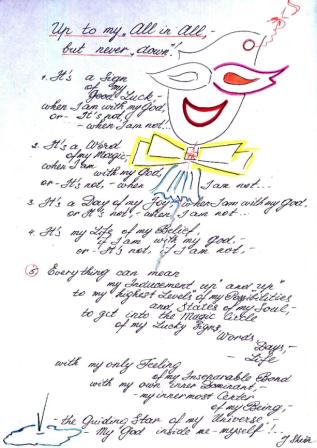 Up to my „All in All,-
but never „down"!
1. It's a Sign
of my
Good Luck -
when I am with my God,
or - It's not,
- when I am not...
2. It's a Word
of my Magic,-
when I am
with my God,
or - It's not, - when I am not...
3. It's a Day of my Joy when I am with my God,
or It's not, - when I am not...
4. It's my Life of my Belief,
if I am with my God, -
or - It's not, if I am not, -
5 Everything can mean
my Inducement „up" and „up"
to my „highest Levels" of my Possibilities
and States of my Soul, -
to get into the Magic Circle
of my Lucky Signs,
Words
Days, -
Life
with my only Feeling
of my Inseparable Bond
with my own inner Dominant, -
- my innermost Center
of my Being, -
- the Guiding Star of my Universe, -
- My God inside me - myself!